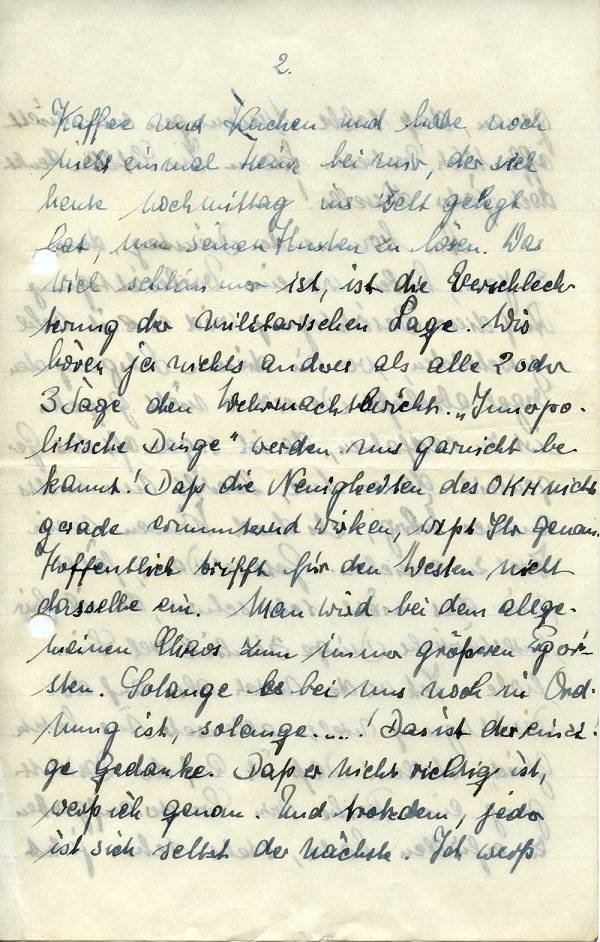 2.
Kaffee und Kuchen und habe noch
nicht einmal Heinz bei mir, der sich
heute nachmittag ins Bett gelegt
hat, um seinen Husten zu lösen. Was
viel schlimmer ist, ist die Verschlech-
terung der militärischen Lage. Wir
hören ja nichts anderes als alle 2 oder
3 Tage den Wehrmachtbericht. „Innerpo-
litische Dinge“ werden uns garnicht be-
kannt! Daß die Neuigkeiten des OKH nicht
gerade ermunternd wirken, wißt Ihr genau.
Hoffentlich trifft für den Westen nicht
dasselbe ein. Man wird bei dem allge-
meinen Chaos zum immer größeren Egoi-
sten. Solange es bei uns noch in Ord-
nung ist, solange....! Das ist der einzi-
ge gedanke. Daß er nicht richtig ist,
weiß ich genau. Und trotzdem, jeder
ist sich selbst der nächste. Ich weiß